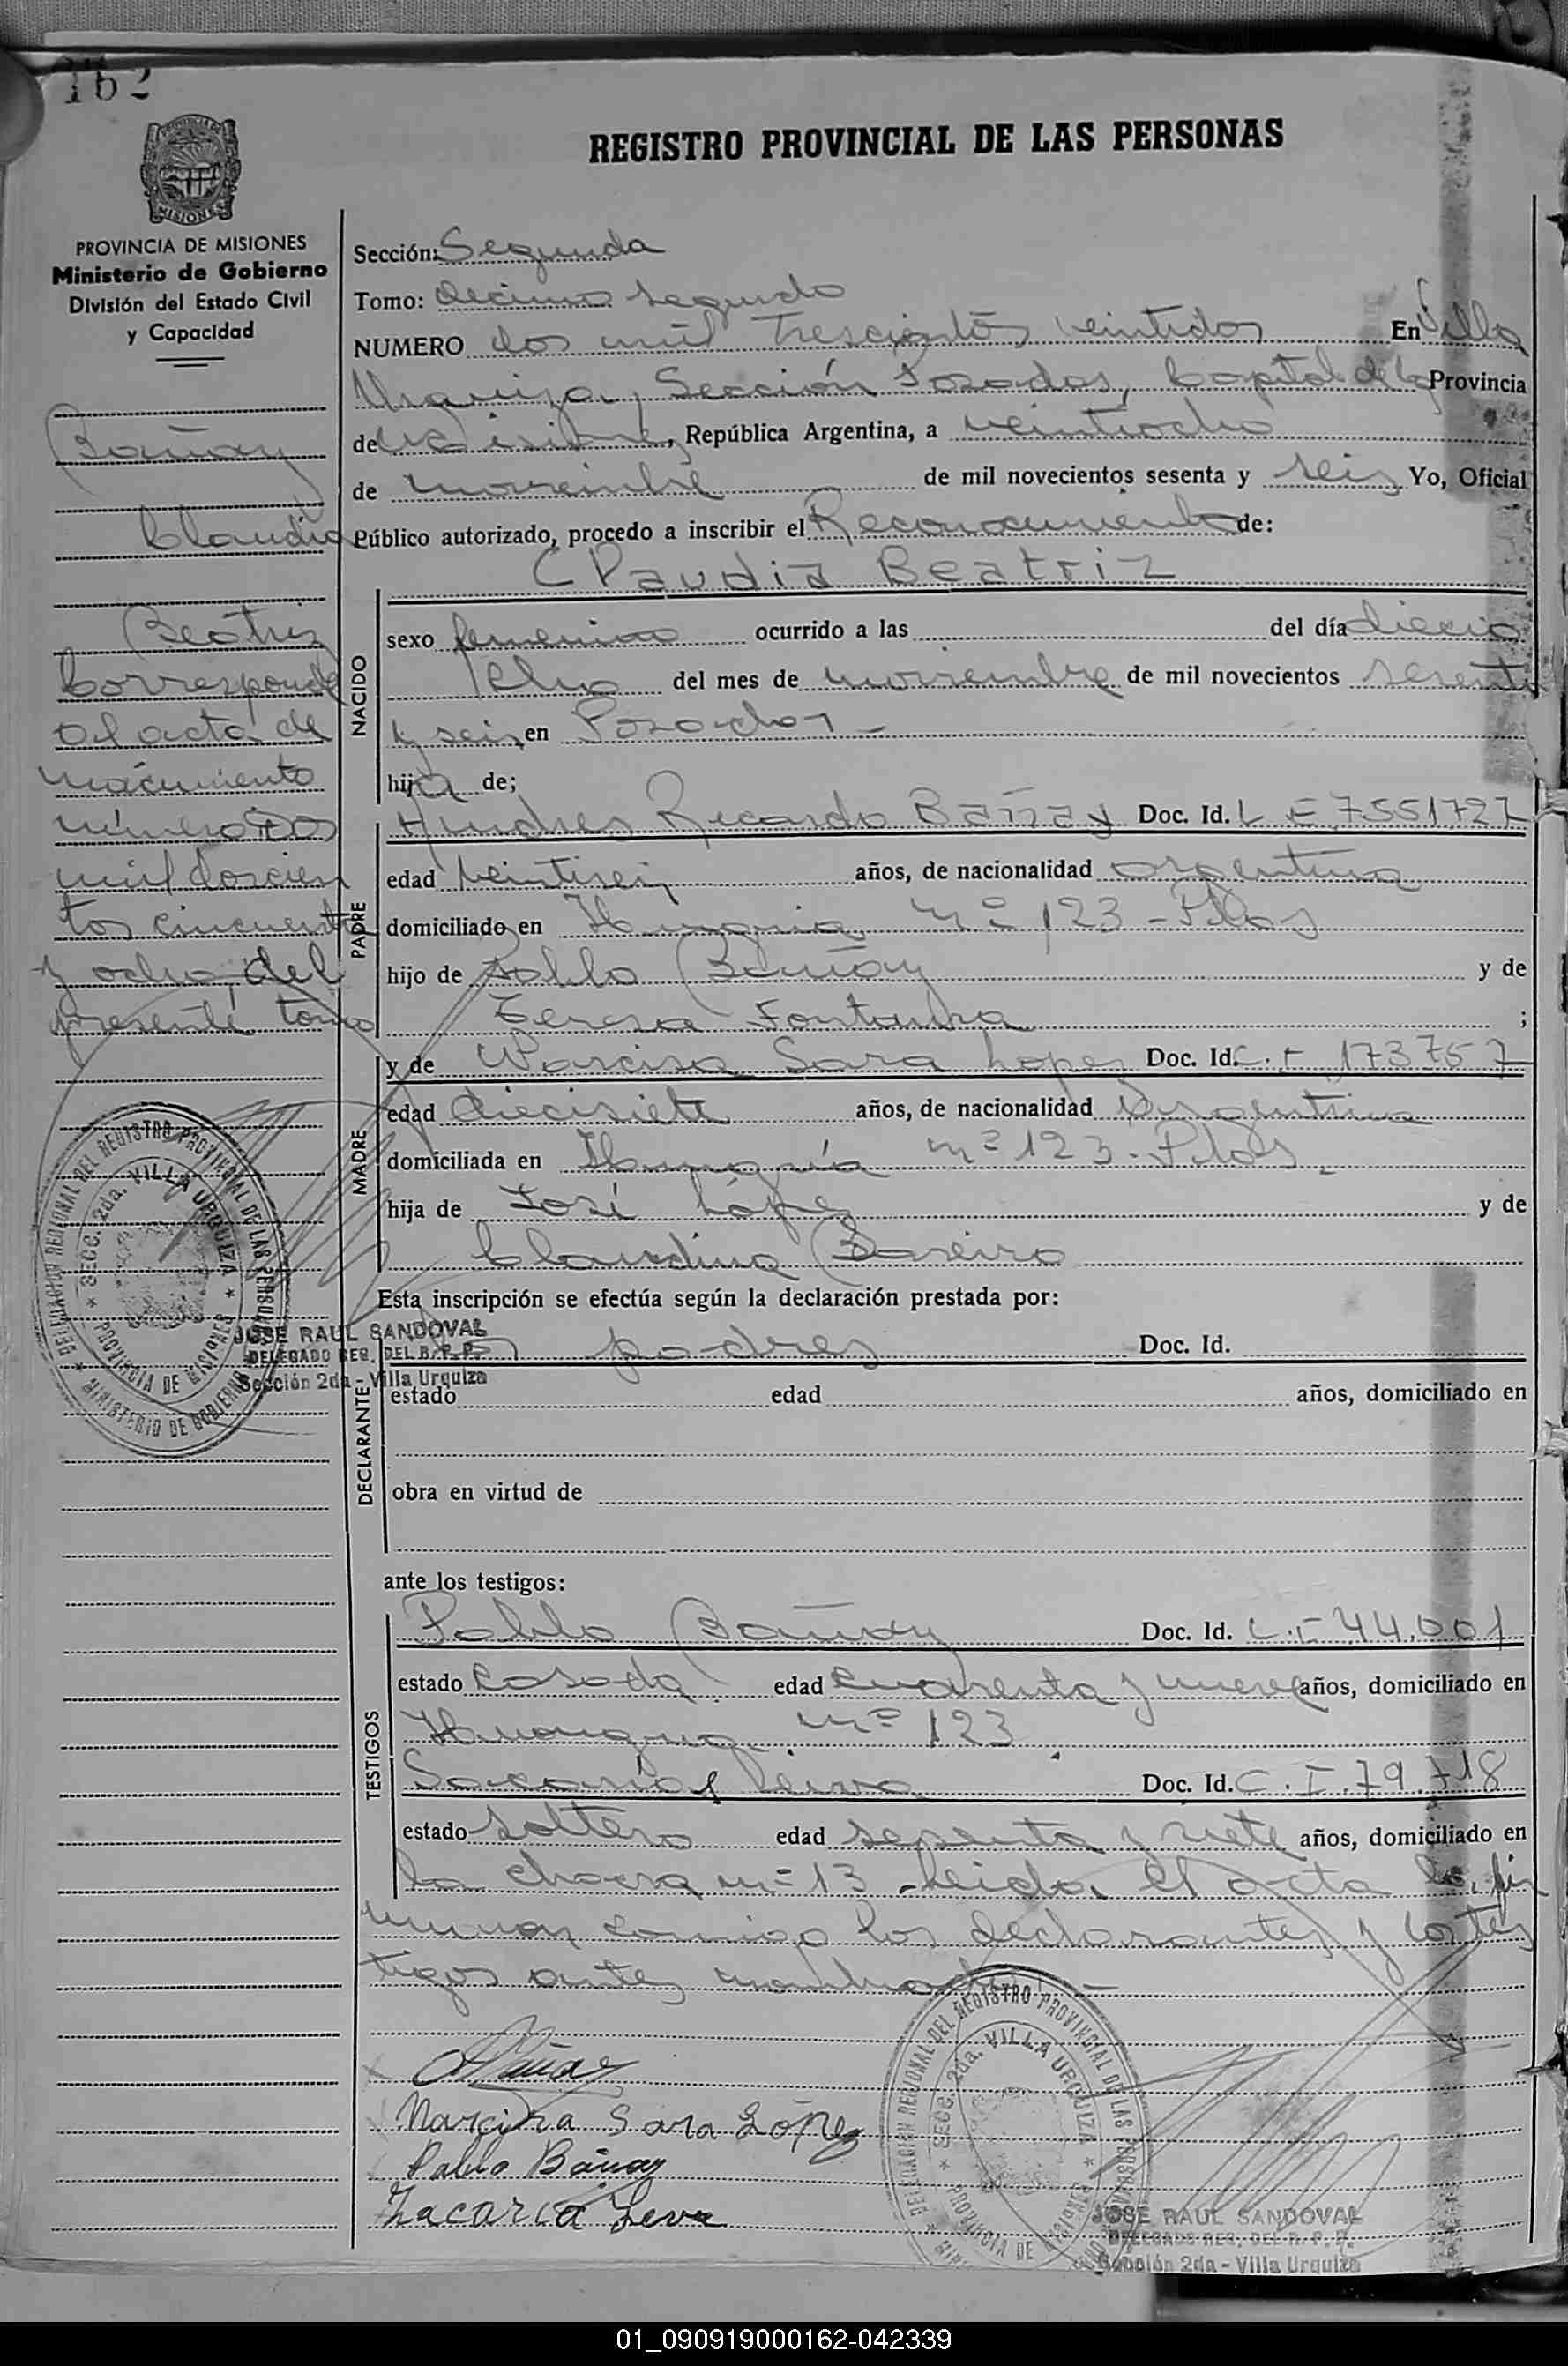 162
REGISTRO PROVINCIAL DE LAS PERSONAS
PROVINCIA DE MISIONES
Ministerio de Gobierno
División del Estado Civil
y Capacidad
Bañay
Claudia
Beatriz
Corresponde
al acta de
nacimiento
número Dos
mil doscien
tos cincuenta
y ocho del
presente tomo
Sección: Segunda
Tomo: decimo segundo
NUMERO dos mil trescientos veintidos En Villa
Urquiza, Sección Posadas, Capital de la Provincia
de Misiones, República Argentina, a veintiocho
de noviembre de mil novecientos sesenta y seis Yo, Oficial
Público autorizado, procedo a inscribir el Reconocimiento de:
Claudia Beatriz
NACIDO
sexo femenino ocurrido a las del día diecio
cho del mes de noviembre de mil novecientos sesenta
y seis en Posadas -
hija de;
PADRE
Andres Ricardo Bañay Doc. Id. L E 7551727
edad veintiseis años, de nacionalidad argentina
domiciliado en Hungria nº 123 - Pdas
hijo de Pablo Bañay y de
Teresa ;
MADRE
y de Narcisa Sara Lopez Doc. Id. C. I 173757
edad diecisiete años, de nacionalidad Argentina
domiciliada en Hungría nº 123 - Pdas -
hija de José López y de
Claudina
Esta inscripción se efectúa según la declaración prestada por:
DECLARANTE
los padres Doc. Id.
estado edad años, domiciliado en
obra en virtud de
ante los testigos:
TESTIGOS
Pablo Bañay Doc. Id. L. E 44.001
estado Casado edad cuarenta y nueve años, domiciliado en
nº 123
Leiva Doc. Id. C. I. 79.718
estado Soltero edad sesenta y siete años, domiciliado en
la chacra nº 13 - Leida el acta la fir
man conmigo los declarantes y los tes
tigos antes nombrados -
Bañay
Narcisa Sara López
Pablo Bañay
Zacaria Leva
DELEGACION REGIONAL DEL REGISTRO PROVINCIAL DE LAS PERSONAS
MINISTERIO DE GOBIERNO
SECC. 2da. VILLA URQUIZA
PROVINCIA DE MISIONES
JOSE RAUL SANDOVAL
DELEGADO REG. DEL R. P. P.
Sección 2da - Villa Urquiza
DELEGACION REGIONAL DEL REGISTRO PROVINCIAL DE LAS PERSONAS
SECC. 2da. VILLA URQUIZA
PROVINCIA DE MISIONES
JOSE RAUL SANDOVAL
DELEGADO REG. DEL R. P. P.
Sección 2da - Villa Urquiza
01_090919000162-042339